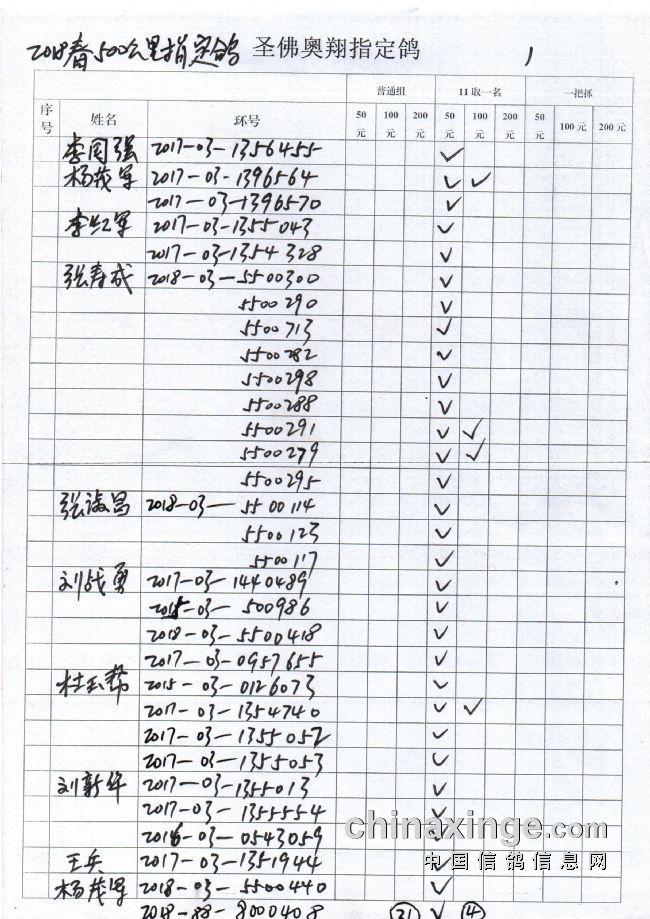 2018春500公里指定鸽 圣佛奥翔指定鸽 1
普通组 11取一名 一把抓
序号 姓名 环号 50元 100元 200元 50元 100元 200元 50元 100元 200元
李国强 2017-03-1356455 ✓
杨茂军 2017-03-1396564 ✓ ✓
2017-03-1396570 ✓
李红军 2017-03-1355043 ✓
2017-03-1354328 ✓
张寿成 2018-03-5500300 ✓
5500290 ✓
5500713 ✓
5500282 ✓
5500298 ✓
5500288 ✓
5500291 ✓ ✓
5500279 ✓ ✓
5500295 ✓
张淑昌 2018-03-5500114 ✓
5500123 ✓
5500117 ✓
刘战勇 2017-03-1440489 ✓
2015-03-500986 ✓
2018-03-5500418 ✓
2017-03-0957655 ✓
杜玉 2015-03-0126073 ✓
2017-03-1354740 ✓ ✓
2017-03-1355052 ✓
2017-03-1355053 ✓
刘新华 2017-03-1355013 ✓
2017-03-1355554 ✓
2016-03-0543059 ✓
王兵 2017-03-1351944 ✓
杨茂军 2018-03-5500440 ✓
2018-88-8000408 31 ✓ 14
chinaxinge.com
中国信鸽信息网